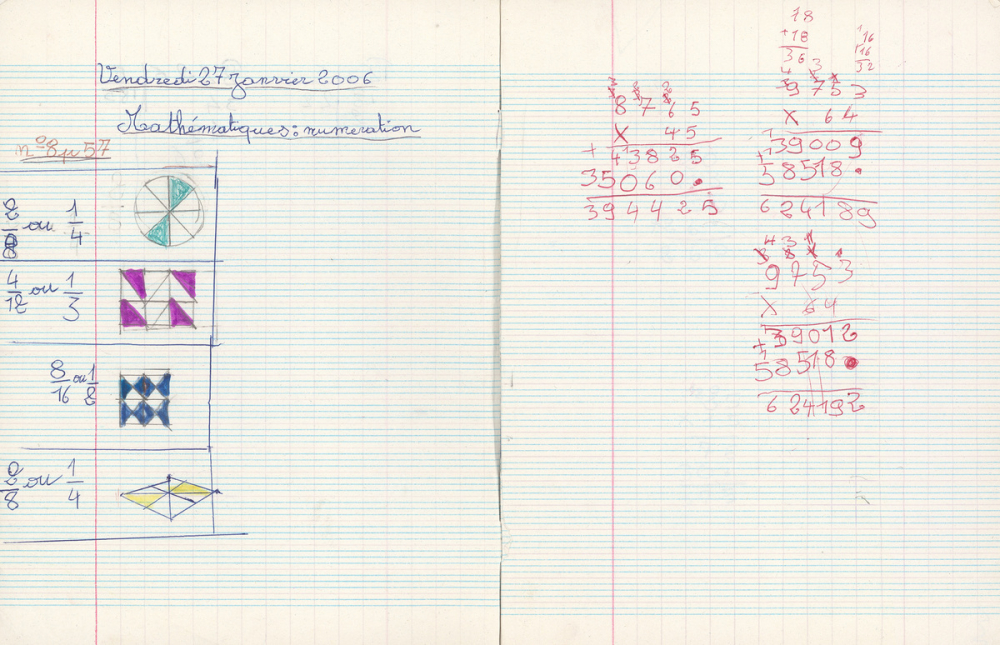 Vendredi 27 Janvier 2006
Mathématiques : numération
n°8 p 57
2/8 ou 1/4
4/12 ou 1/3
8/16 ou 1/2
2/8 ou 1/4
8765
X 45
+ 43825
35060.
394425
18
+18
36
16
16
32
4 3
9753
X 64
39009
+ 58518.
624189
4 3 1
9753
X 64
39012
+ 58518.
624192